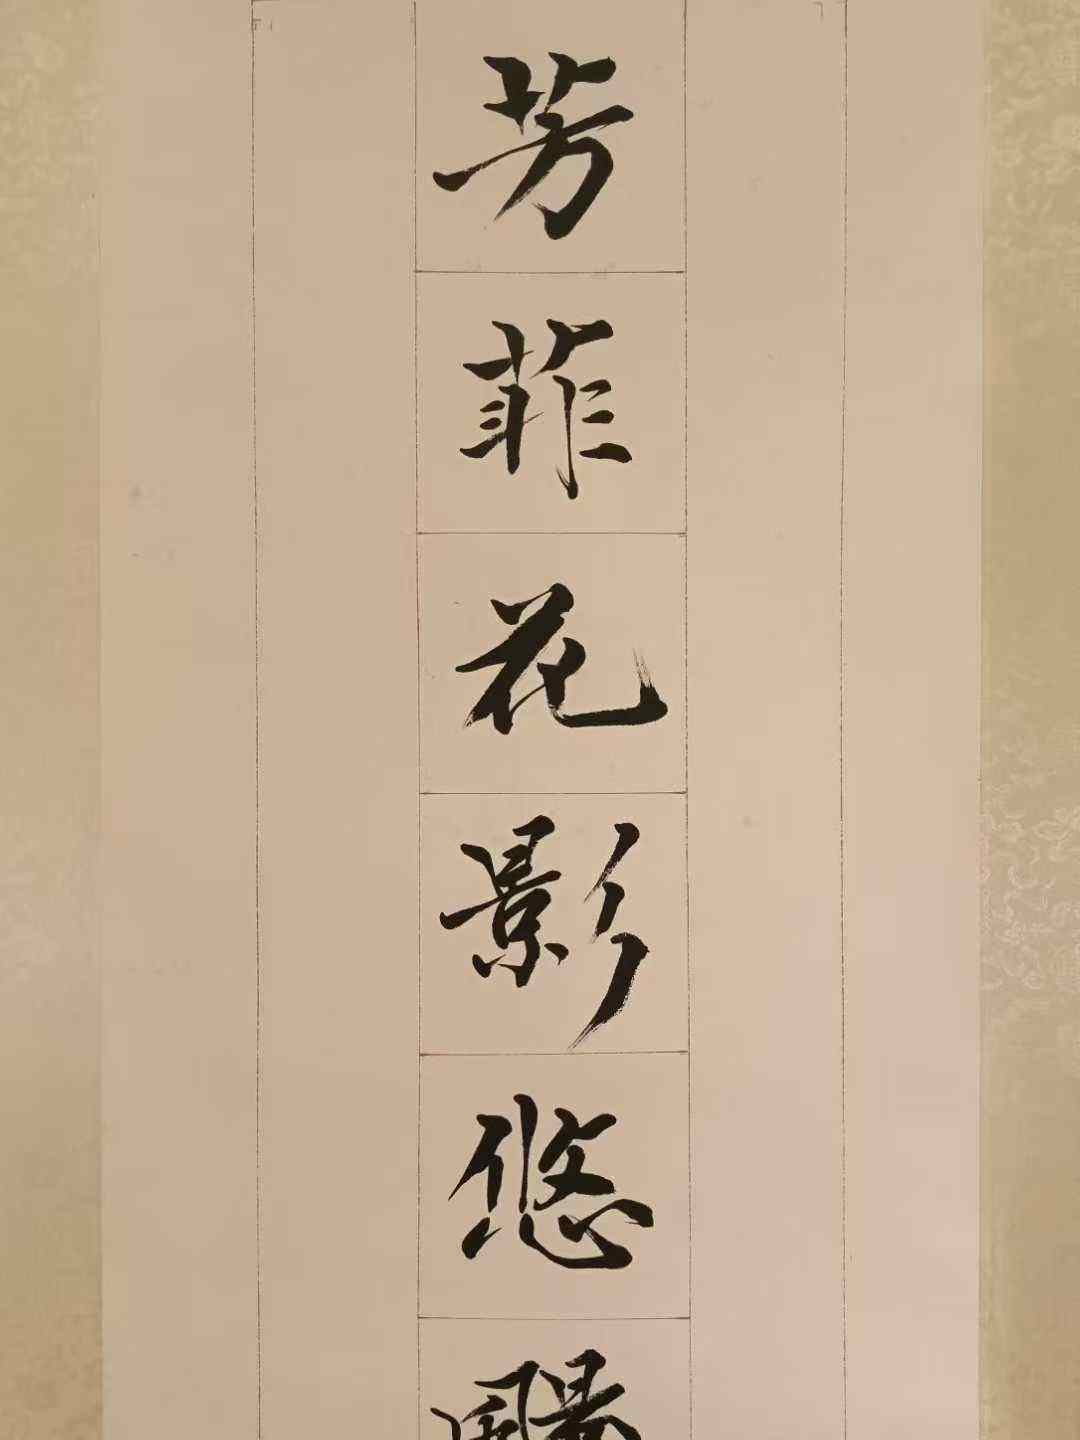 芳菲花影悠飏